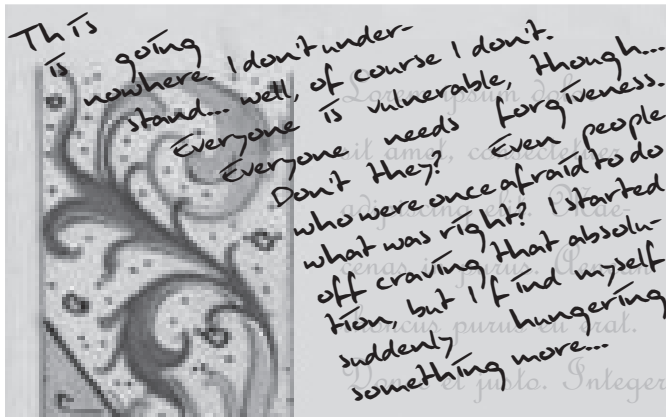 This
is going
nowhere. I don't under-
stand... well, of course I don't.
Everyone is vulnerable, though...
Everyone needs forgiveness.
Don't they? Even people
who were once afraid to do
what was right? I started
off craving that absolu-
tion, but I find myself
suddenly hungering
something more...
Lorem ipsum dolor
sit amet, consectetuer
adipiscing elit. Mae-
cenas in purus. Aenean
rhoncus purus eu erat.
Donec et justo. Integer